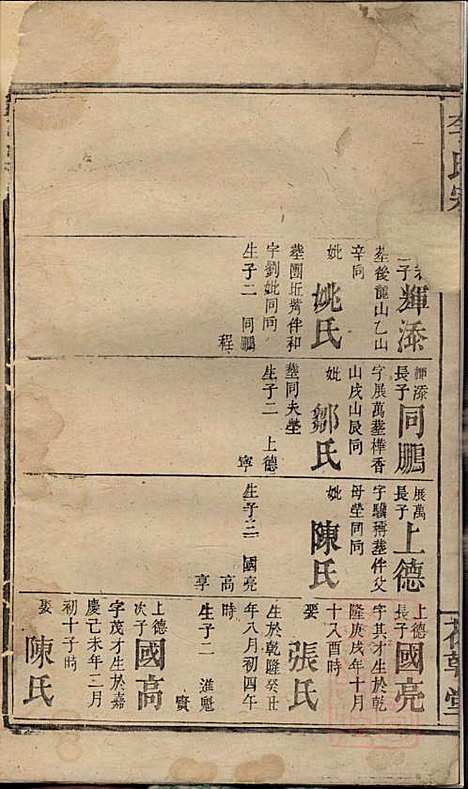 李氏宗
輝添
二子
葬後龍山乙山
辛同
妣
姚氏
葬團坵觜伴和
字劉妣同同
生子二 同鵬
程
輝添
長子
同鵬
字展萬葬樺香
山戌山辰同
妣
鄒氏
葬同夫塋
生子二 上德
寧
展萬
長子
上德
字驥葬伴父
母塋同同
妣
陳氏
生子三 國亮
高
享
上德
長子
國亮
字其才生於乾
隆庚戌年十月
十八酉時
娶
張氏
生於乾隆癸丑
年八月初四午
時
生子二 進魁
賢
上德
次子
國高
字茂才生於嘉
慶己未年二月
初十子時
娶
陳氏
花萼堂